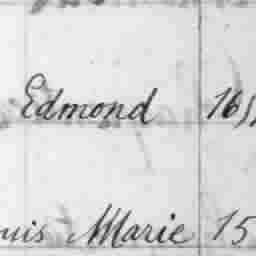 Edmond 16
uis Marie 15